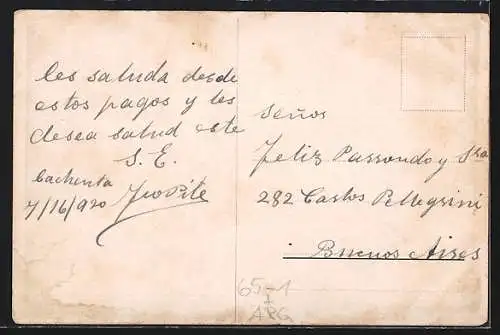 les saluda desde
estos pagos y les
desea salud este
S. E.
Cacheuta
7/16/920
Señor
Feliz Passondo y Sra
282 Carlos Pellegrini
Buenos Aires
65-1
ARG